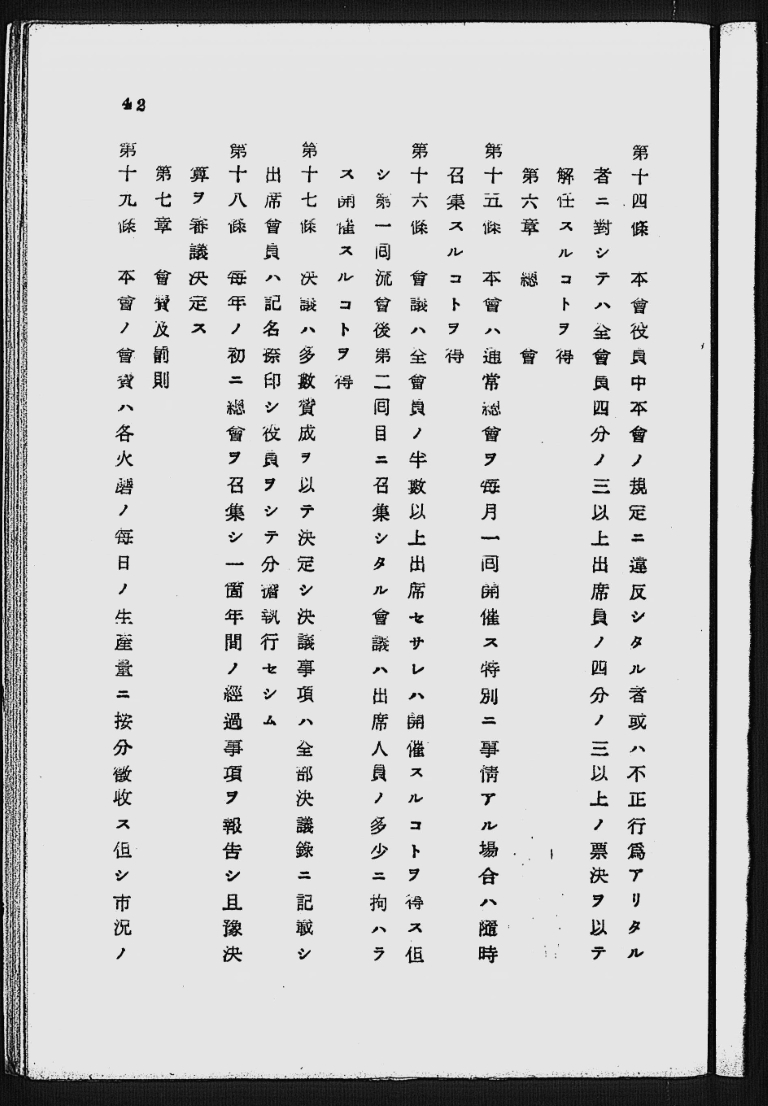 42
第十四條　本會役員中本會ノ規定ニ違反シタル者或ハ不正行爲アリタル
者ニ對シテハ全會員四分ノ三以上出席員ノ四分ノ三以上ノ票決ヲ以テ
解任スルコトヲ得
第六章　總　會
第十五條　本會ハ通常總會ヲ毎月一回開催ス特別ニ事情アル場合ハ隨時
召集スルコトヲ得
第十六條　會議ハ全會員ノ半數以上出席セサレハ開催スルコトヲ得ス但
シ第一回流會後第二回目ニ召集シタル會議ハ出席人員ノ多少ニ拘ハラ
ス開催スルコトヲ得
第十七條　決議ハ多數贊成ヲ以テ決定シ決議事項ハ全部決議錄ニ記載シ
出席會員ハ記名捺印シ役員ヲシテ分擔執行セシム
第十八條　每年ノ初ニ總會ヲ召集シ一箇年間ノ經過事項ヲ報告シ且豫決
算ヲ審議決定ス
第七章　會費及罰則
第十九條　本會ノ會費ハ各火磨ノ每日ノ生產量ニ按分徵收ス但シ市況ノ